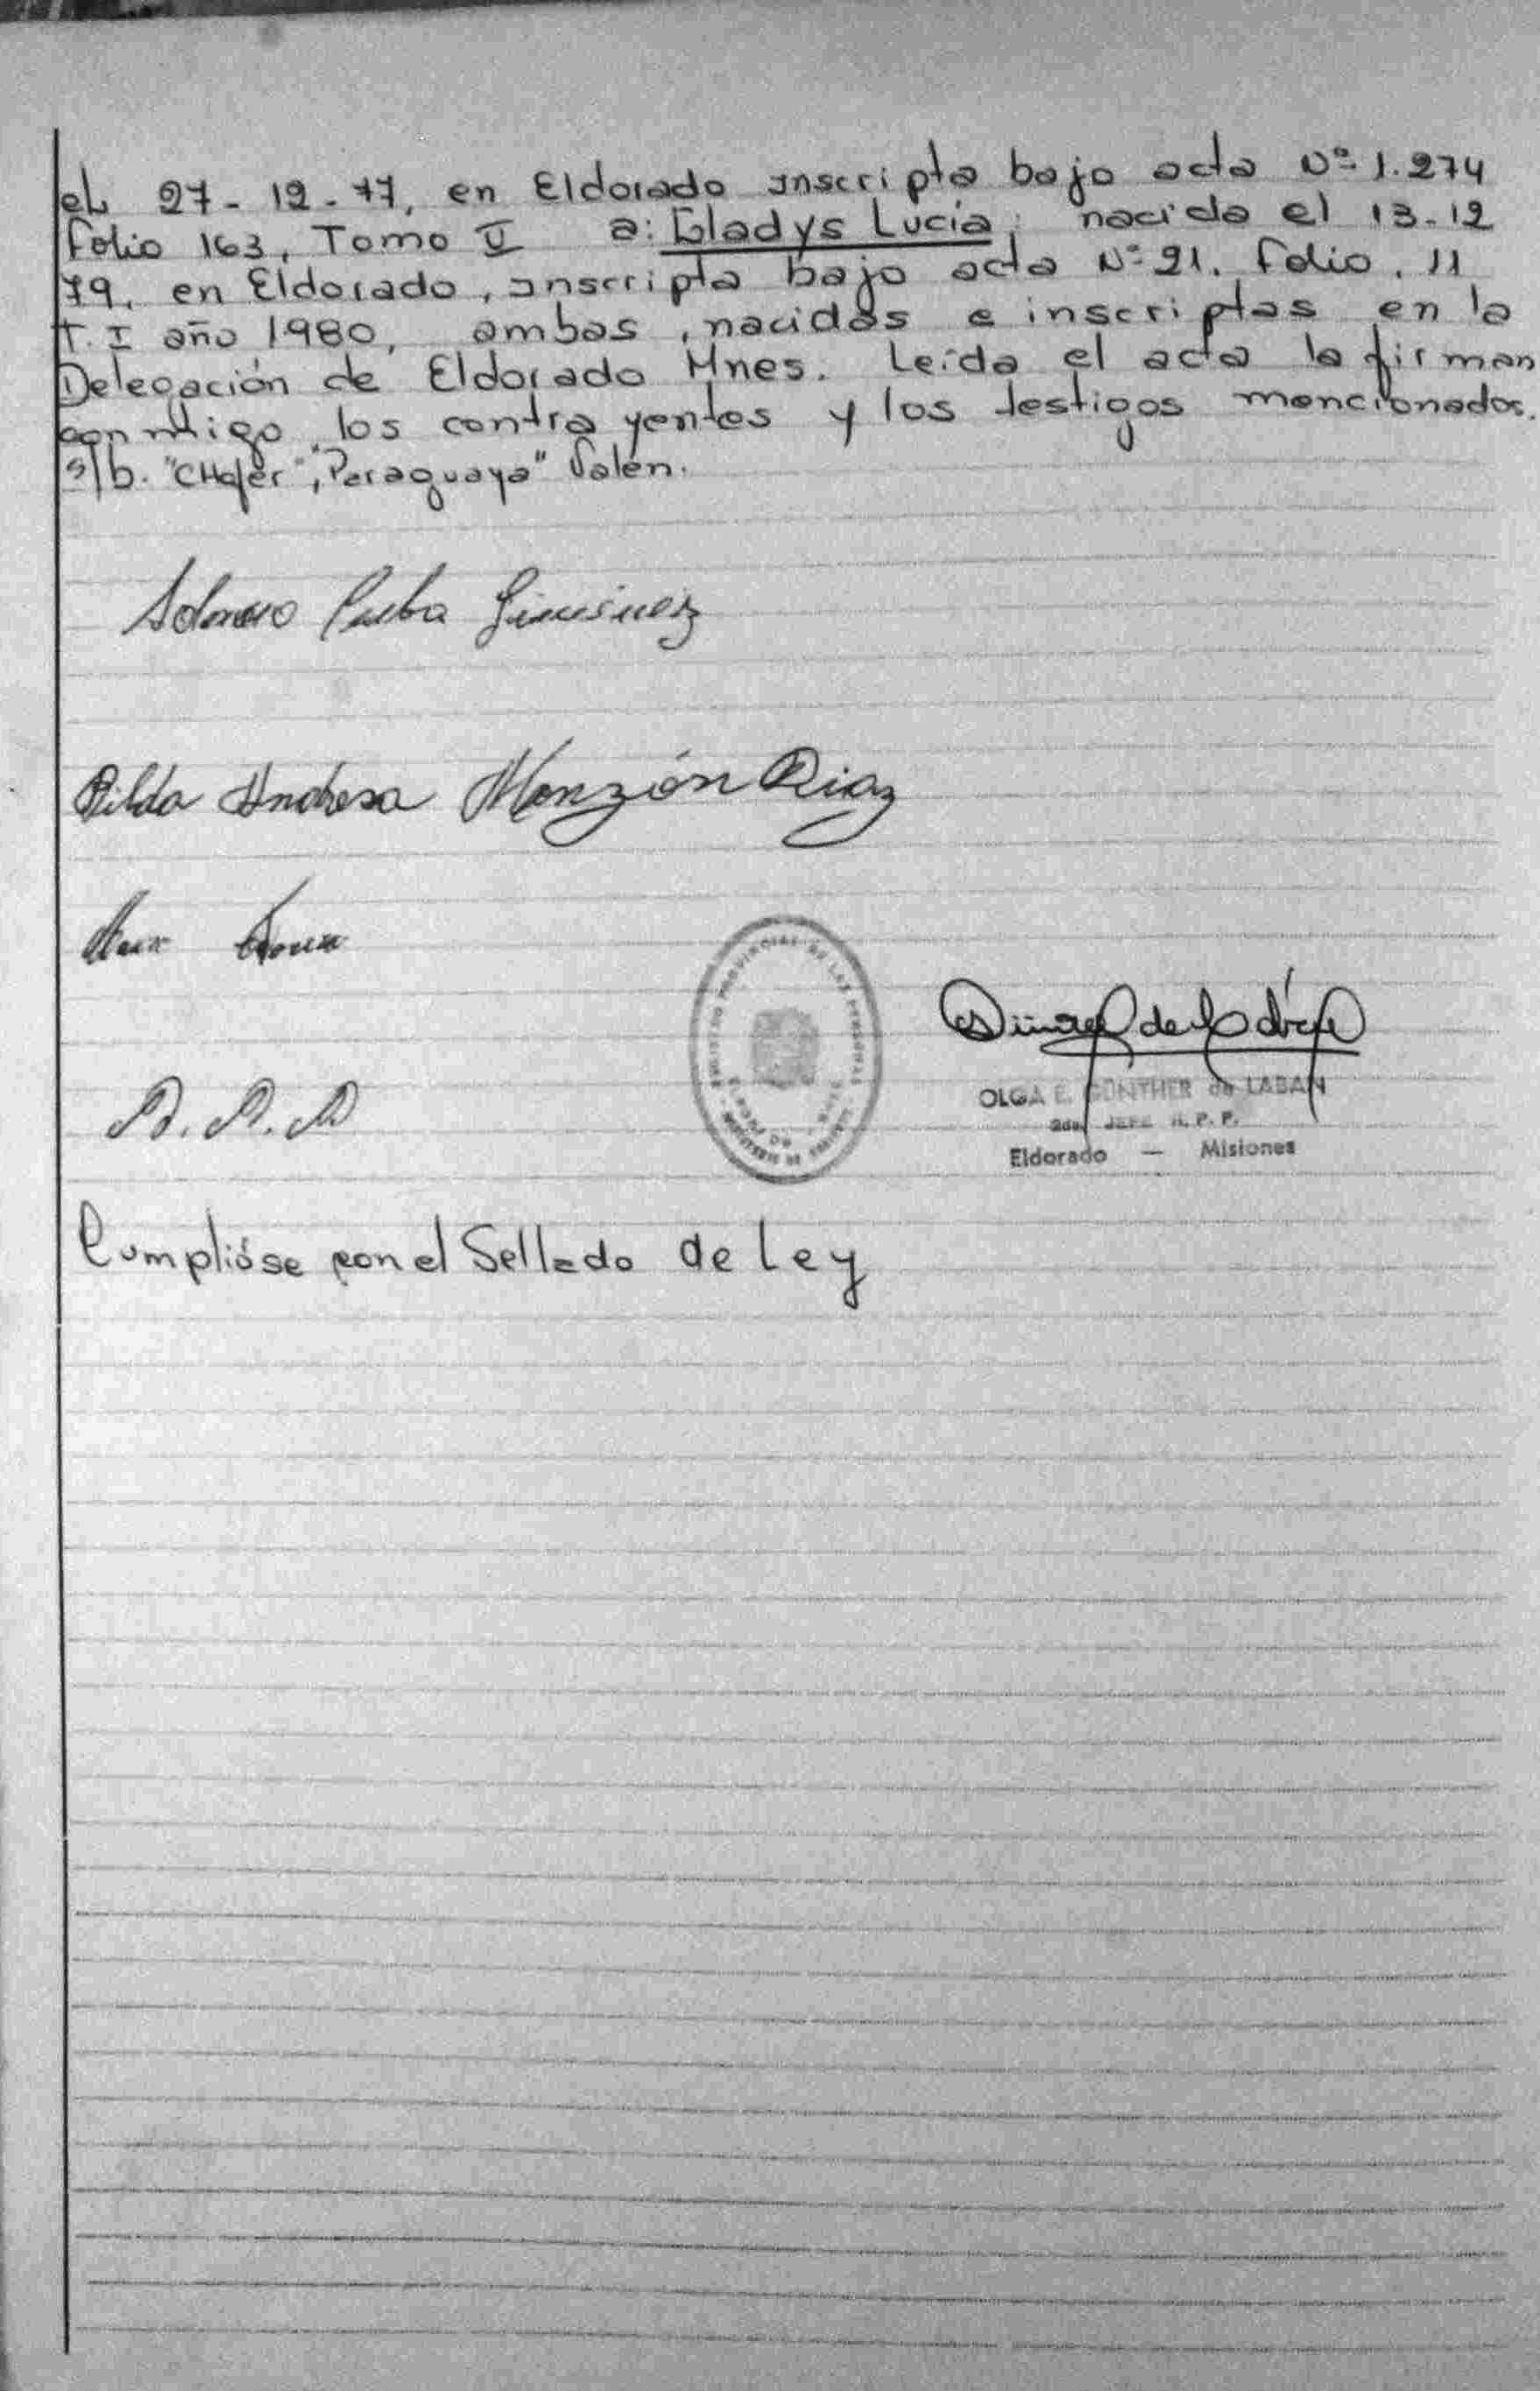 el 27-12-77, en Eldorado inscripta bajo acta Nº 1.274
Folio 163, Tomo V a: Gladys Lucía; nacida el 13-12
79, en Eldorado, inscripta bajo acta Nº 21. Folio, 11
T. I año 1980, ambas, nacidas e inscriptas en la
Delegación de Eldorado Mnes. Leída el acta la firman
conmigo, los contrayentes y los testigos mencionados.
s/b. "CHofer", "Paraguaya" Valen.
Gimenez
Hilda Andresa Monzón Diaz
REGISTRO PROVINCIAL DE LAS PERSONAS
OLGA E. GUNTHER de LABAN
2da. JEFE R. P. P.
Eldorado — Misiones
Cumplióse con el Sellado de Ley